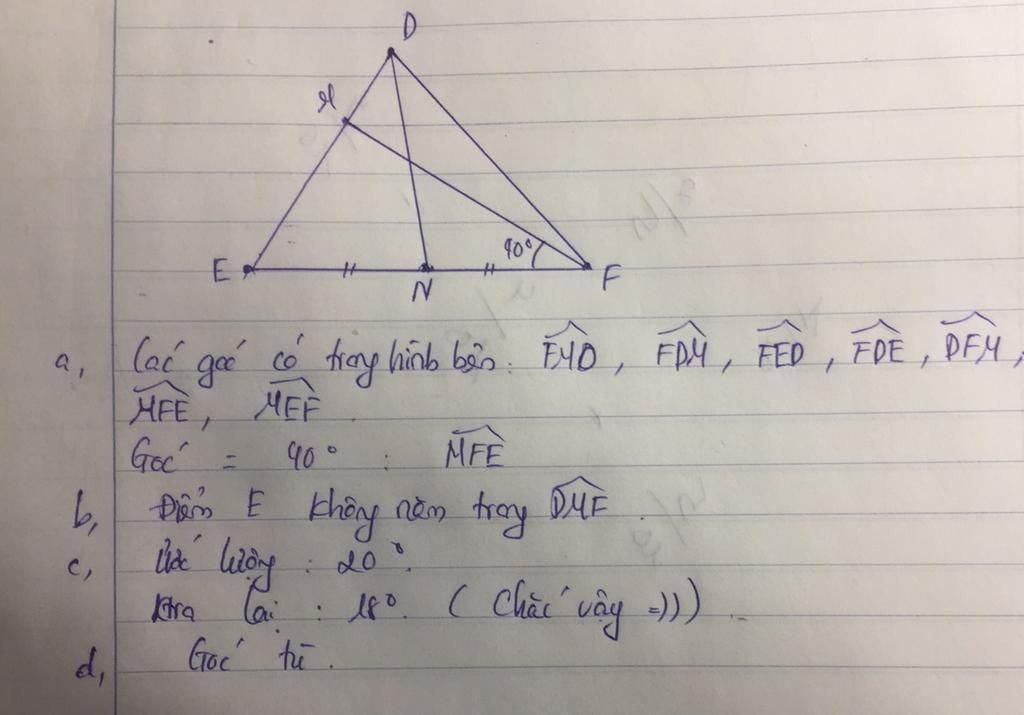 D
M
E
N
F
40°
a, Các góc có trong hình bên: FMD, FDM, FED, FDE, DFM,
MFE, MEF.
Góc = 40° : MFE
b, Điểm E không nằm trong DMF.
c, Ước lượng : 20°.
Ktra lại : 18°. ( Chắc vậy =))) .
d, Góc tù.